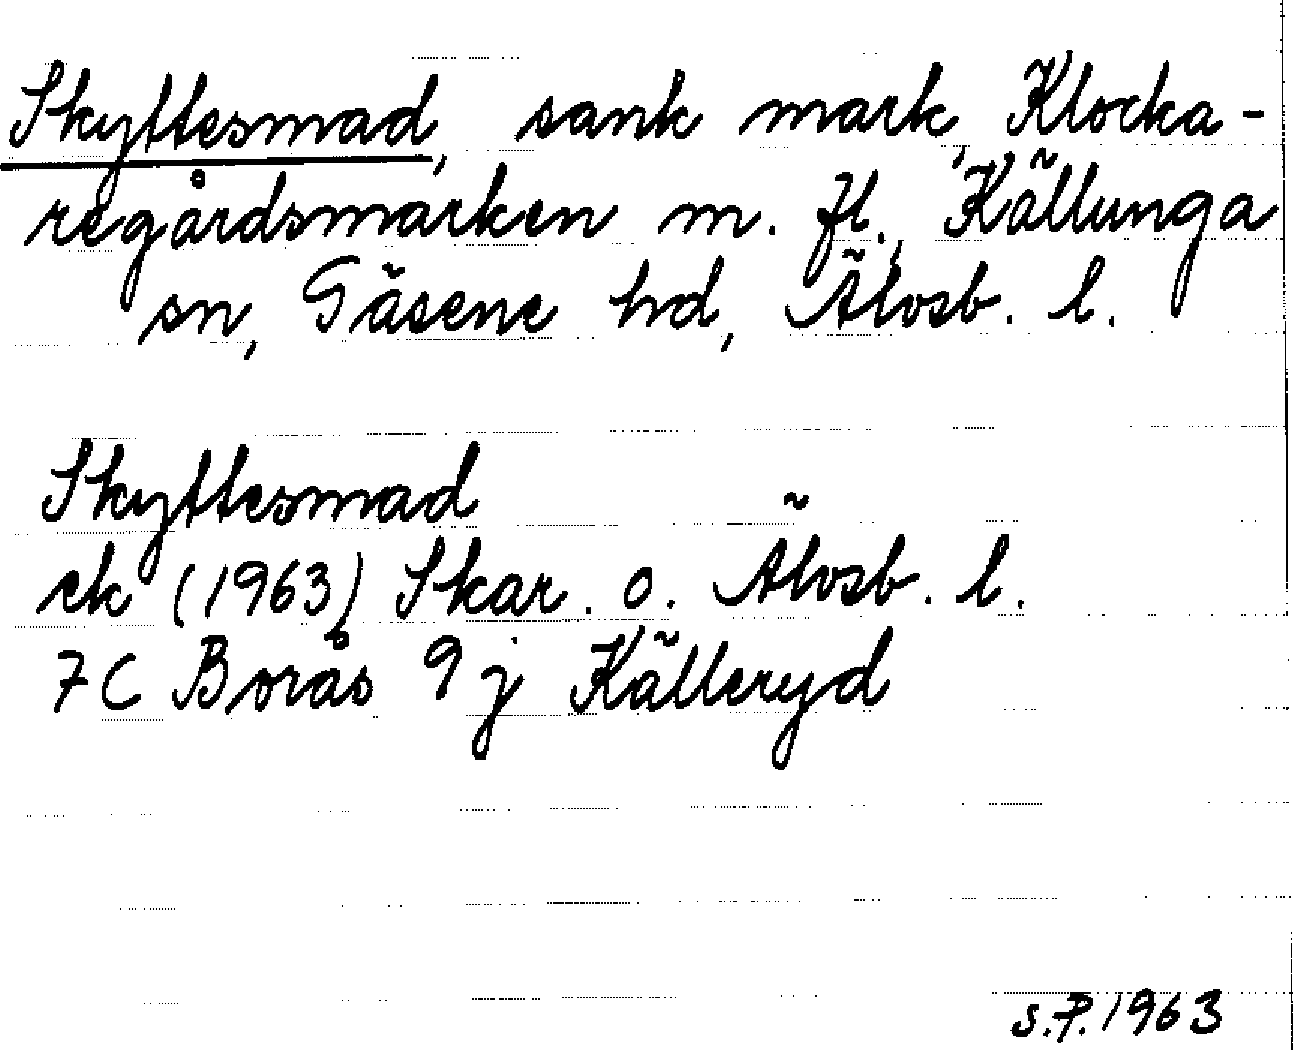 Skyttesmad, sank mark, Klocka-
regårdsmarken m. fl., Källunga
sn, Gäsene hd, Älvsb. l.
Skyttesmad
ek (1963) Skar. o. Älvsb. l.
7C Borås 9j Källeryd
S.P. 1963